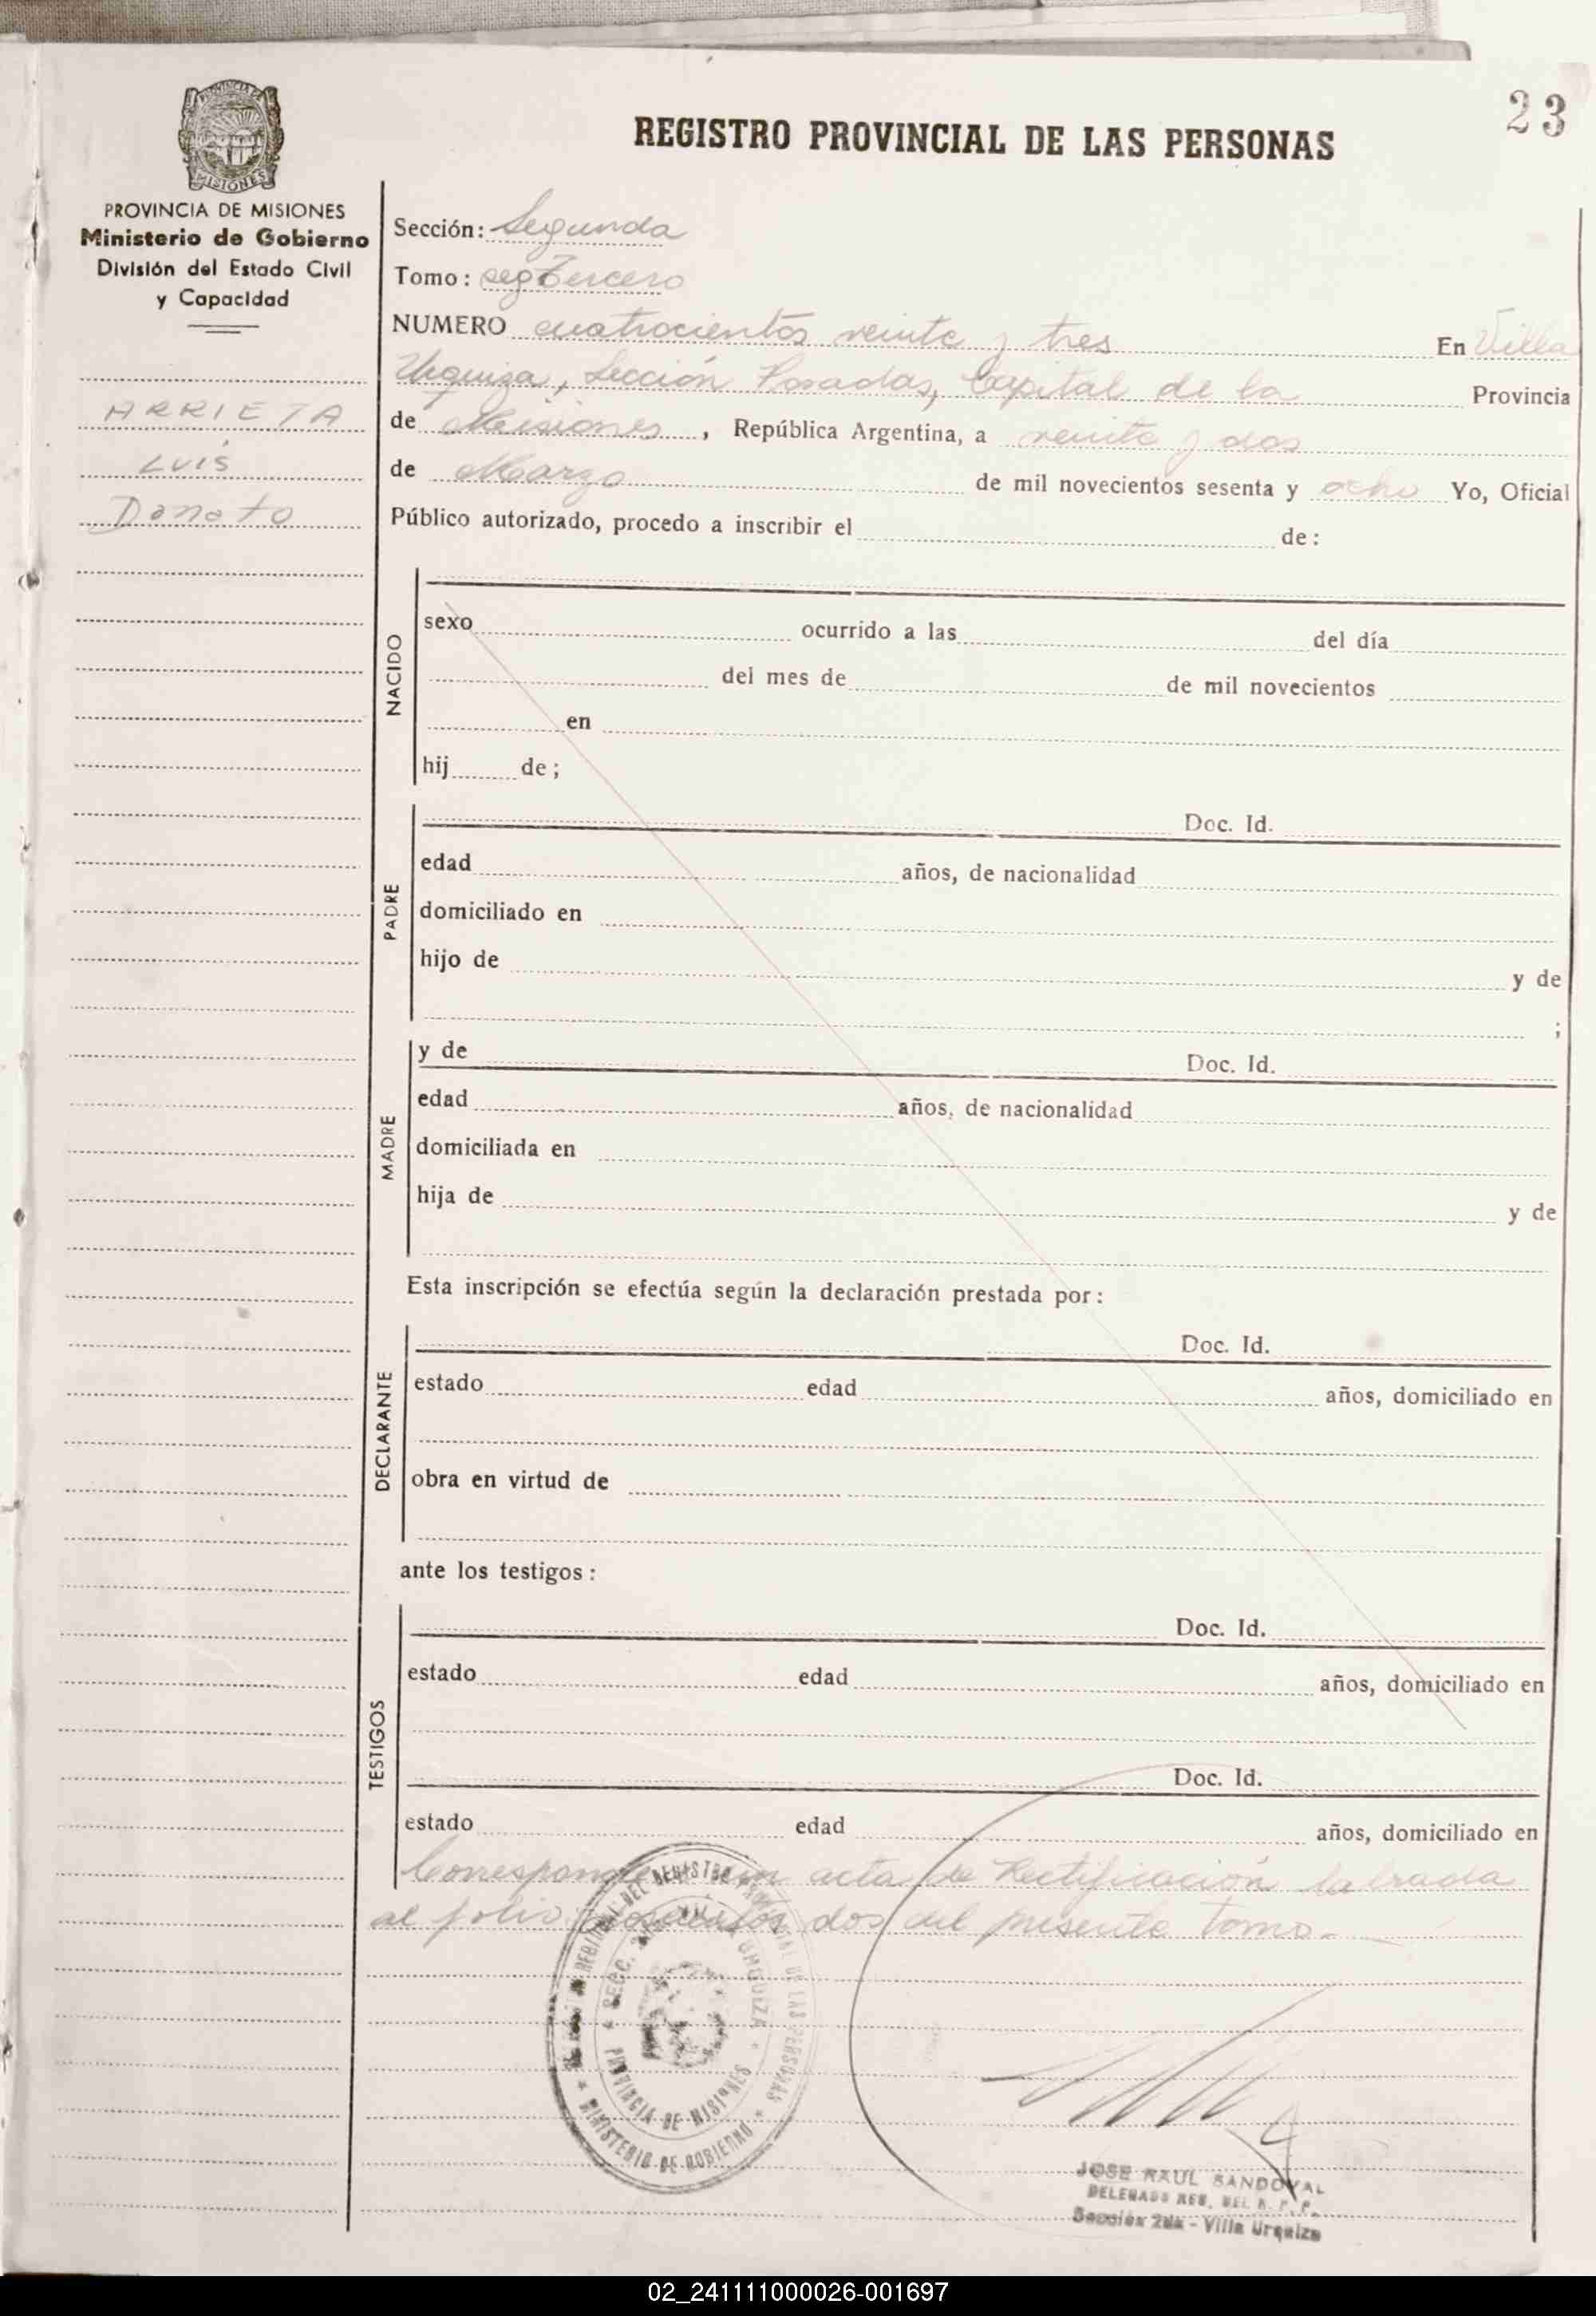 23
REGISTRO PROVINCIAL DE LAS PERSONAS
PROVINCIA DE MISIONES
PROVINCIA DE MISIONES
Ministerio de Gobierno
División del Estado Civil
y Capacidad
ARRIETA
LUIS
Donato
Sección: Segunda
Tomo: seg Tercero
NUMERO cuatrocientos veinte y tres En Villa
Urquiza, Sección Posadas, Capital de la Provincia
de Misiones, República Argentina, a veinte y dos
de Marzo de mil novecientos sesenta y ocho Yo, Oficial
Público autorizado, procedo a inscribir el de:
NACIDO
sexo ocurrido a las del día
del mes de de mil novecientos
en
hij de;
PADRE
Doc. Id.
edad años, de nacionalidad
domiciliado en
hijo de y de
;
MADRE
y de Doc. Id.
edad años, de nacionalidad
domiciliada en
hija de y de
Esta inscripción se efectúa según la declaración prestada por:
DECLARANTE
Doc. Id.
estado edad años, domiciliado en
obra en virtud de
ante los testigos:
TESTIGOS
Doc. Id.
estado edad años, domiciliado en
Doc. Id.
estado edad años, domiciliado en
Corresponde acta de Rectificación labrada
al folio dos del presente tomo.-
DEL REGISTRO PROVINCIAL DE LAS PERSONAS
MINISTERIO DE GOBIERNO
SECC. URQUIZA
PROVINCIA DE MISIONES
JOSE RAUL SANDOVAL
DELEGADO REG. DEL R. P. P.
Sección 2da - Villa Urquiza
02_241111000026-001697